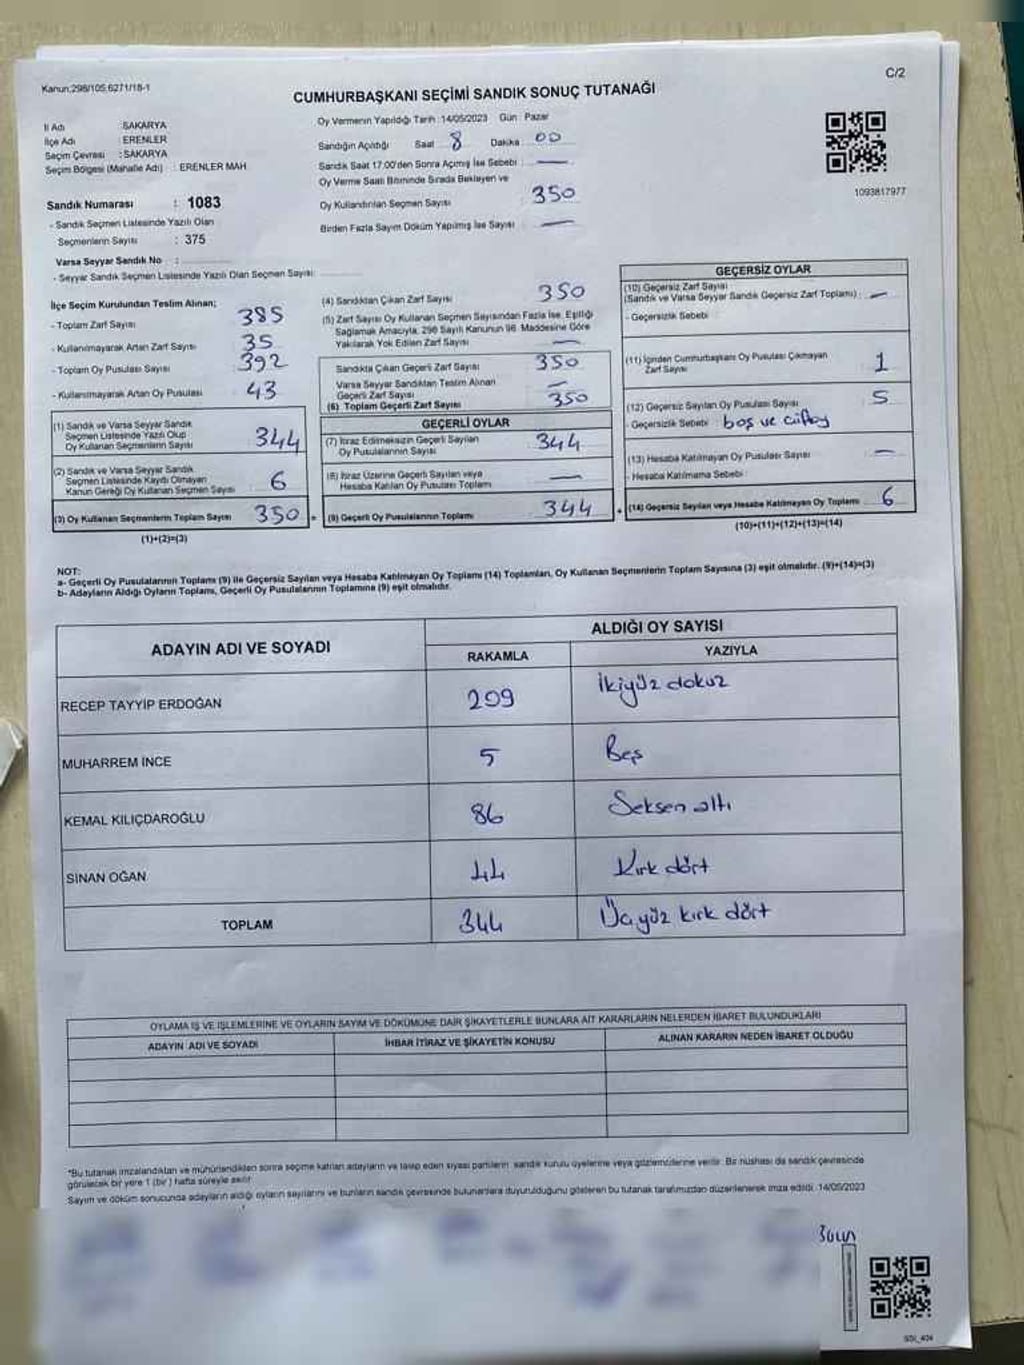 Kanun:298/105,6271/18-1
C/2
CUMHURBAŞKANI SEÇİMİ SANDIK SONUÇ TUTANAĞI
İl Adı :SAKARYA
İlçe Adı :ERENLER
Seçim Çevresi :SAKARYA
Seçim Bölgesi (Mahalle Adı) : ERENLER MAH
Sandık Numarası : 1083
- Sandık Seçmen Listesinde Yazılı Olan
Seçmenlerin Sayısı : 375
Varsa Seyyar Sandık No :
- Seyyar Sandık Seçmen Listesinde Yazılı Olan Seçmen Sayısı:
Oy Vermenin Yapıldığı Tarih :14/05/2023 Gün : Pazar
Sandığın Açıldığı Saat 8 Dakika : 00
Sandık Saat 17:00'den Sonra Açımış İse Sebebi : —
Oy Verme Saati Bitiminde Sırada Bekleyen ve
Oy Kullandırılan Seçmen Sayısı : 350
Birden Fazla Sayım Döküm Yapılmış İse Sayısı : —
1093817977
İlçe Seçim Kurulundan Teslim Alınan;
- Toplam Zarf Sayısı 385
- Kullanılmayarak Artan Zarf Sayısı 35
- Toplam Oy Pusulası Sayısı 392
- Kullanılmayarak Artan Oy Pusulası 43
(1) Sandık ve Varsa Seyyar Sandık
Seçmen Listesinde Yazılı Olup
Oy Kullanan Seçmenlerin Sayısı 344
(2) Sandık ve Varsa Seyyar Sandık
Seçmen Listesinde Kaydı Olmayan
Kanun Gereği Oy Kullanan Seçmen Sayısı 6
(3) Oy Kullanan Seçmenlerin Toplam Sayısı 350
(1)+(2)=(3)
(4) Sandıktan Çıkan Zarf Sayısı 350
(5) Zarf Sayısı Oy Kullanan Seçmen Sayısından Fazla İse, Eşitliği
Sağlamak Amacıyla, 298 Sayılı Kanunun 98. Maddesine Göre
Yakılarak Yok Edilen Zarf Sayısı —
Sandıkta Çıkan Geçerli Zarf Sayısı 350
Varsa Seyyar Sandıktan Teslim Alınan
Geçerli Zarf Sayısı —
(6) Toplam Geçerli Zarf Sayısı 350
GEÇERLİ OYLAR
(7) İtiraz Edilmeksizin Geçerli Sayılan
Oy Pusulalarının Sayısı 344
(8) İtiraz Üzerine Geçerli Sayılan veya
Hesaba Katılan Oy Pusulası Toplamı —
= (9) Geçerli Oy Pusulalarının Toplamı 344
GEÇERSİZ OYLAR
(10) Geçersiz Zarf Sayısı
(Sandık ve Varsa Seyyar Sandık Geçersiz Zarf Toplamı) : —
- Geçersizlik Sebebi :
(11) İçinden Cumhurbaşkanı Oy Pusulası Çıkmayan
Zarf Sayısı 1
(12) Geçersiz Sayılan Oy Pusulası Sayısı 5
- Geçersizlik Sebebi : boş ve çiftoy
(13) Hesaba Katılmayan Oy Pusulası Sayısı —
- Hesaba Katılmama Sebebi :
+ (14) Geçersiz Sayılan veya Hesaba Katılmayan Oy Toplamı 6
(10)+(11)+(12)+(13)=(14)
NOT:
a- Geçerli Oy Pusulalarının Toplamı (9) ile Geçersiz Sayılan veya Hesaba Katılmayan Oy Toplamı (14) Toplamları, Oy Kullanan Seçmenlerin Toplam Sayısına (3) eşit olmalıdır. (9)+(14)=(3)
b- Adayların Aldığı Oyların Toplamı, Geçerli Oy Pusulalarının Toplamına (9) eşit olmalıdır.
ADAYIN ADI VE SOYADI
ALDIĞI OY SAYISI
RAKAMLA YAZIYLA
RECEP TAYYİP ERDOĞAN 209 İkiyüz dokuz
MUHARREM İNCE 5 Beş
KEMAL KILIÇDAROĞLU 86 Seksen altı
SİNAN OĞAN 44 Kırk dört
TOPLAM 344 Üçyüz kırk dört
OYLAMA İŞ VE İŞLEMLERİNE VE OYLARIN SAYIM VE DÖKÜMÜNE DAİR ŞİKAYETLERLE BUNLARA AİT KARARLARIN NELERDEN İBARET BULUNDUKLARI
ADAYIN ADI VE SOYADI İHBAR İTİRAZ VE ŞİKAYETİN KONUSU ALINAN KARARIN NEDEN İBARET OLDUĞU
*Bu tutanak imzalandıktan ve mühürlendikten sonra seçime katılan adayların ve talep eden siyasi partilerin sandık kurulu üyelerine veya gözlemcilerine verilir. Bir nüshası da sandık çevresinde
görülecek bir yere 1 (bir) hafta süreyle asılır.
Sayım ve döküm sonucunda adayların aldığı oyların sayılarını ve bunların sandık çevresinde bulunanlara duyurulduğunu gösteren bu tutanak tarafımızdan düzenlenerek imza edildi. 14/05/2023